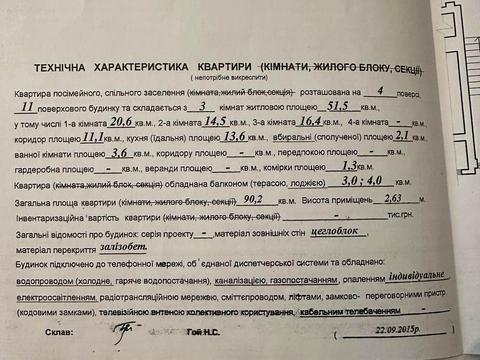 ТЕХНІЧНА ХАРАКТЕРИСТИКА КВАРТИРИ (КІМНАТИ, ЖИЛОГО БЛОКУ, СЕКЦІЇ)
( непотрібне викреслити)
Квартира посімейного, спільного заселення (кімната,жилий блок,секція) розташована на 4 поверсі
11 поверхового будинку та складається з 3 кімнат житловою площею 51,5 кв.м.,
у тому числі 1-а кімната 20,6 кв.м., 2-а кімната 14,5 кв.м., 3-а кімната 16,4 кв.м., 4-а кімната - кв.м.,
коридор площею 11,1 кв.м., кухни (їдальня) площею 13,6 кв.м., вбиральні (сполученої) площею 2,1 кв.м.
ванної кімнати площею 3,6 кв.м., коридору площею - кв.м., передпокою площею - кв.м.,
гардеробна площею - кв.м., веранди площею - кв.м., комірки площею 1,3 кв.м.
Квартира (кімната,жилий блок, секція) обладнана балконом (терасою, лоджією) 3,0 ; 4,0 кв.м.
Загальна площа квартири (кімнати, жилого блоку, секції) 90,2 кв.м. Висота приміщень 2,63 м.
Інвентаризаційна вартість квартири (кімнати, жилого блоку, секції) - тис.грн.
Загальні відомості про будинок: серія проекту - ,матеріал зовнішніх стін цеглоблок,
матеріал перекриття залізобет.
Будинок підключено до телефонної мережі, об'єднаної диспетчерської системи та обладнано:
водопроводом (холодне, гаряче водопостачання), каналізацією, газопостачанням, опаленням індивідуальне
електроосвітленням, радіотрансляційною мережею, сміттєпроводом, ліфтами, замково- переговорними пристр.
(кодовими замками), телевізійною антеною колективного користування, кабельним телебаченням -
Склав: Гой Н.С. ( 22.09.2015р. )